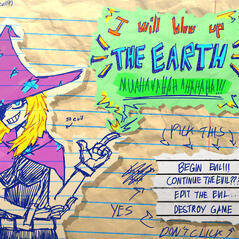 I will blow up
THE EARTH
(PICK THIS)
BEGIN EVIL!!!
CONTINUE THE EVIL???
EDIT THE EVIL...
DESTROY GAME
YES
DON'T CLICK